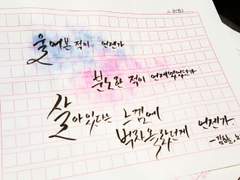 울어본 적이 언젠가
분노한 적이 언제였었던가
살아있다는 느낌에
벅차올랐던게 언젠가